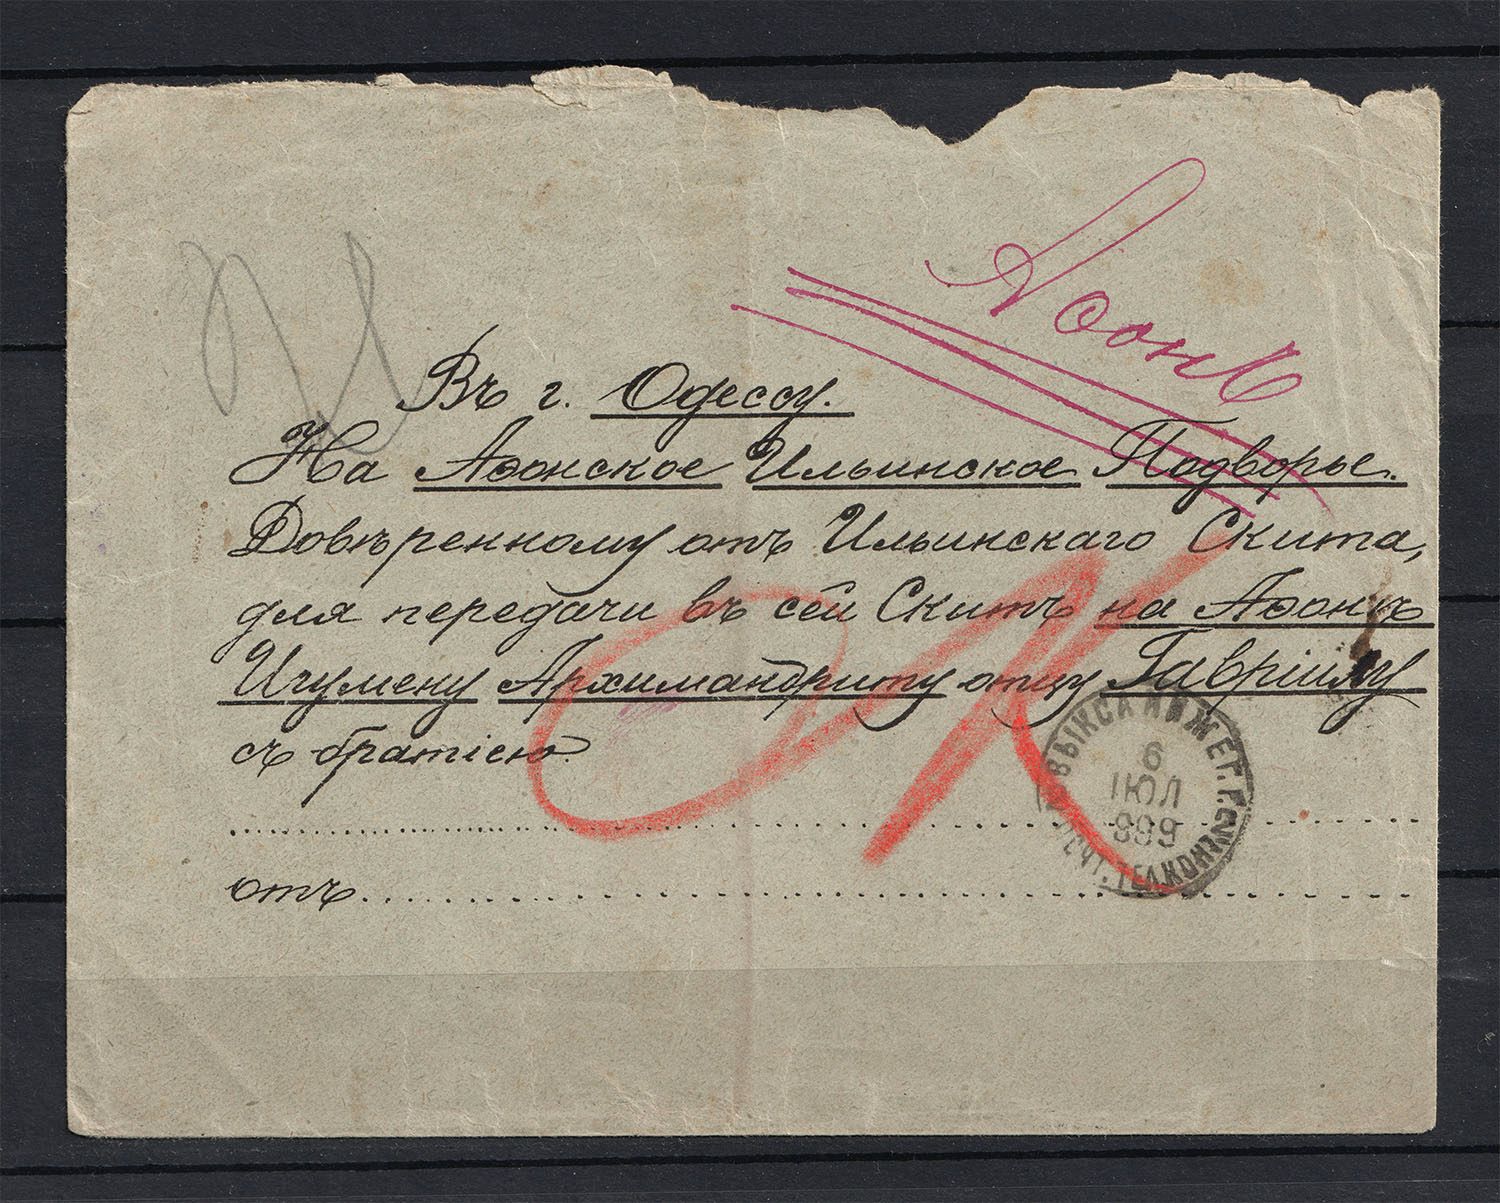 Аѳонъ
Въ г. Одессу.
На Аѳонское Ильинское Подворье.
Довѣренному отъ Ильинскаго Скита,
для передачи въ сей Скитъ на Аѳонѣ
Игумену Архимандриту отцу Гавріилу
съ братіею.
отъ
ВЫКСА НИЖЕГ. Г.
6
ІЮЛ
899
ПОЧТ. ТЕЛ. КОН.